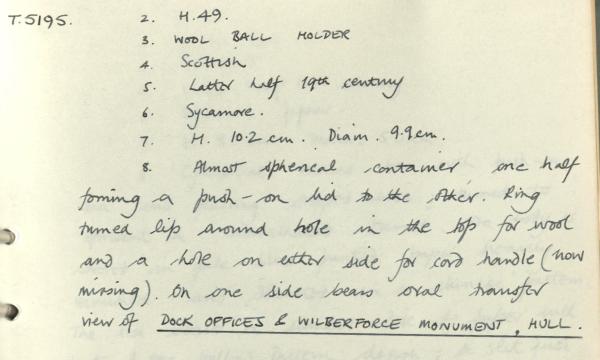 T.5195. 2. H.49.
3. WOOL BALL HOLDER
4. Scottish
5. Latter half 19th century
6. Sycamore.
7. H. 10.2 cm. Diam. 9.9 cm.
8. Almost spherical container, one half
forming a push-on lid to the other. Ring
turned lip around hole in the top for wool
and a hole on either side for cord handle (now
missing). On one side bears oval transfer
view of DOCK OFFICES & WILBERFORCE MONUMENT, HULL.